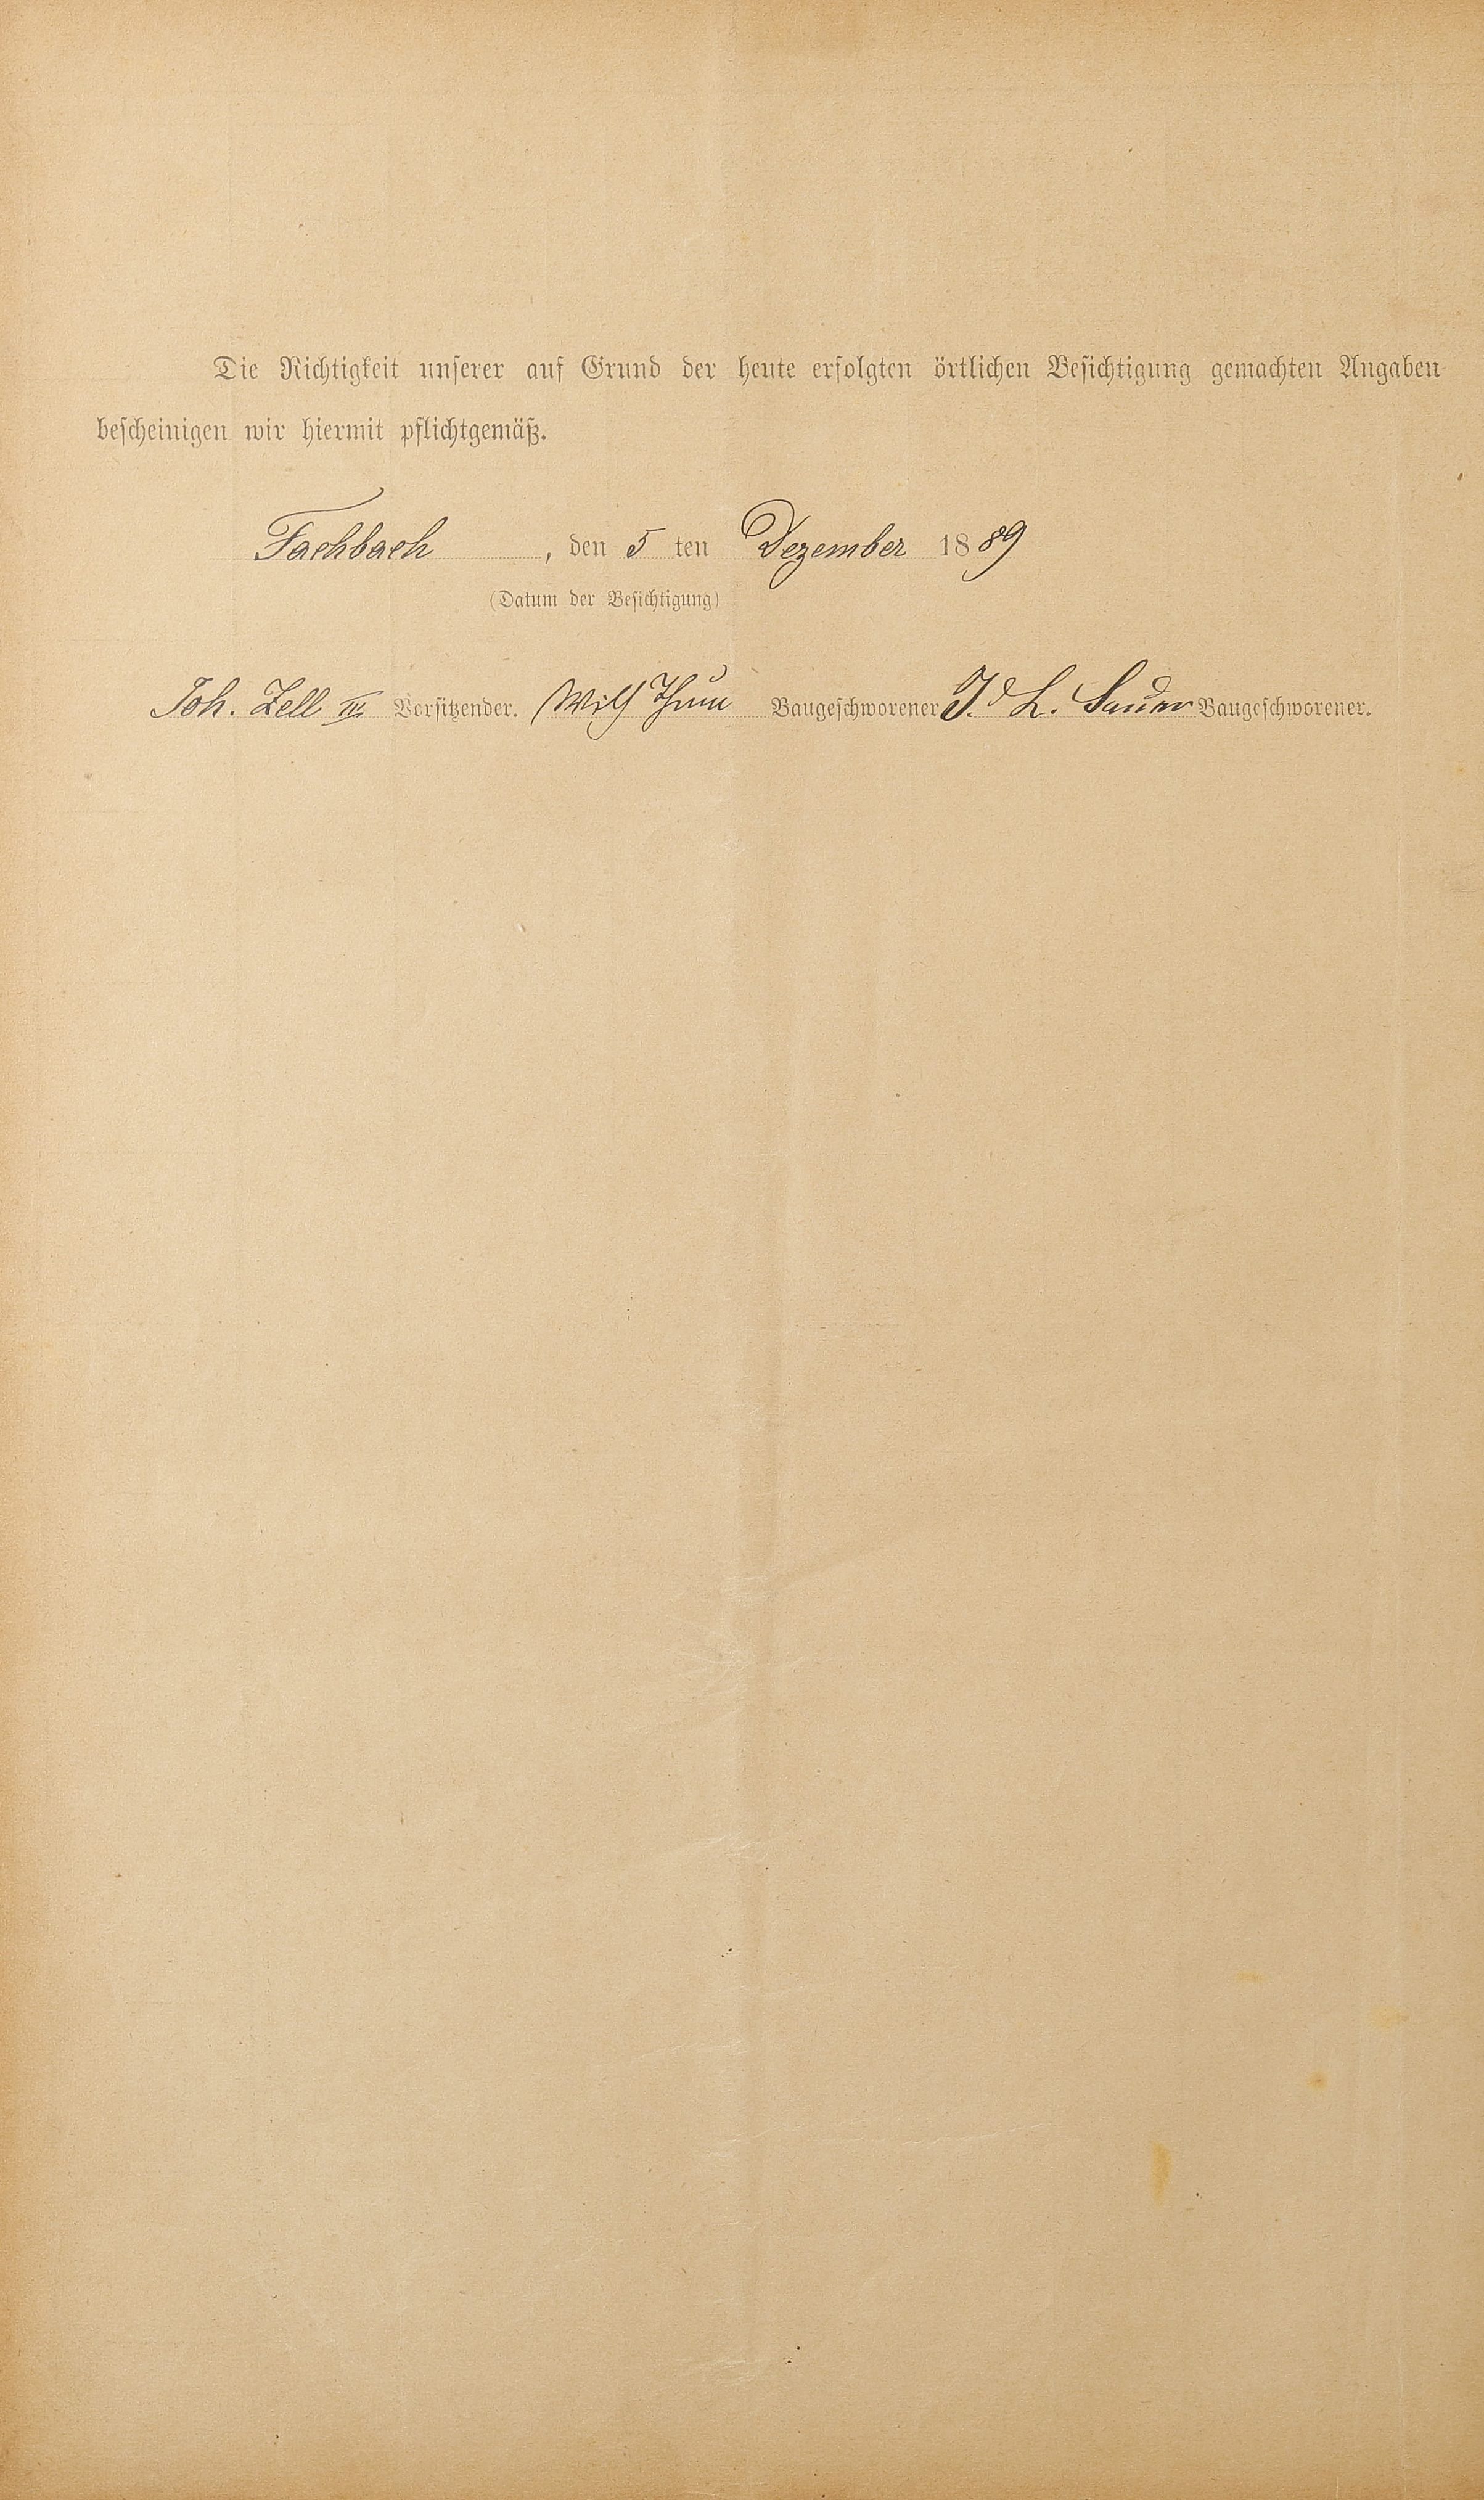 Die Richtigkeit unserer auf Grund der heute erfolgten örtlichen Besichtigung gemachten Angaben
bescheinigen wir hiermit pflichtgemäß.
Fachbach, den 5 ten Dezember 1889
(Datum der Besichtigung)
Joh. Zell III Vorsitzender. Wilh Thum Baugeschworener J. L. Sauer Baugeschworener.